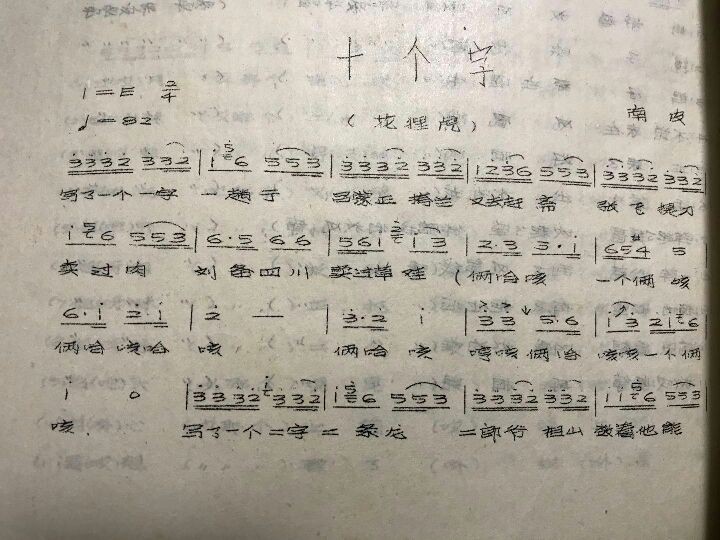 十个字
1=E 2/4
♩=82 (花狸虎) 南皮
3332 332 | 1 6 553 | 3332 332 | 1236 553 | 3332 332
写了一个一字 一趟行 吕蒙正 梅兰 又去赶斋 张飞提刀
1 6 553 | 6·5 6 6 | 561 13 | 2·3 5·1 | 654 5
卖过肉 刘备四川 卖过草鞋 (俩哈咳 一个俩咳
6·1 2·1 | 2 — | 3·2 1 | 3 3 5·6 | 13 216
俩哈咳哈 咳 俩哈 咳 咳俩哈 咳咳一个俩
1 0 | 3332 332 | 1 6 553 | 3332 332 | 11 6 553
咳. 写了一个二字二条龙 二郎爷 担山 他能